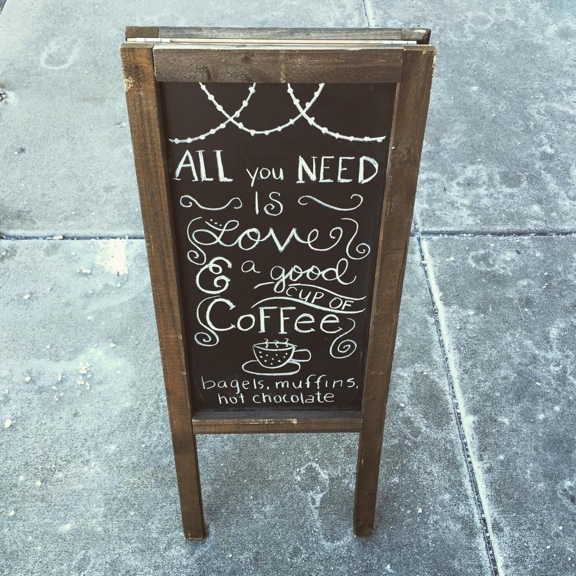 ALL you NEED
IS
Love
& a good
CUP OF
COFFee
bagels, muffins,
hot chocolate